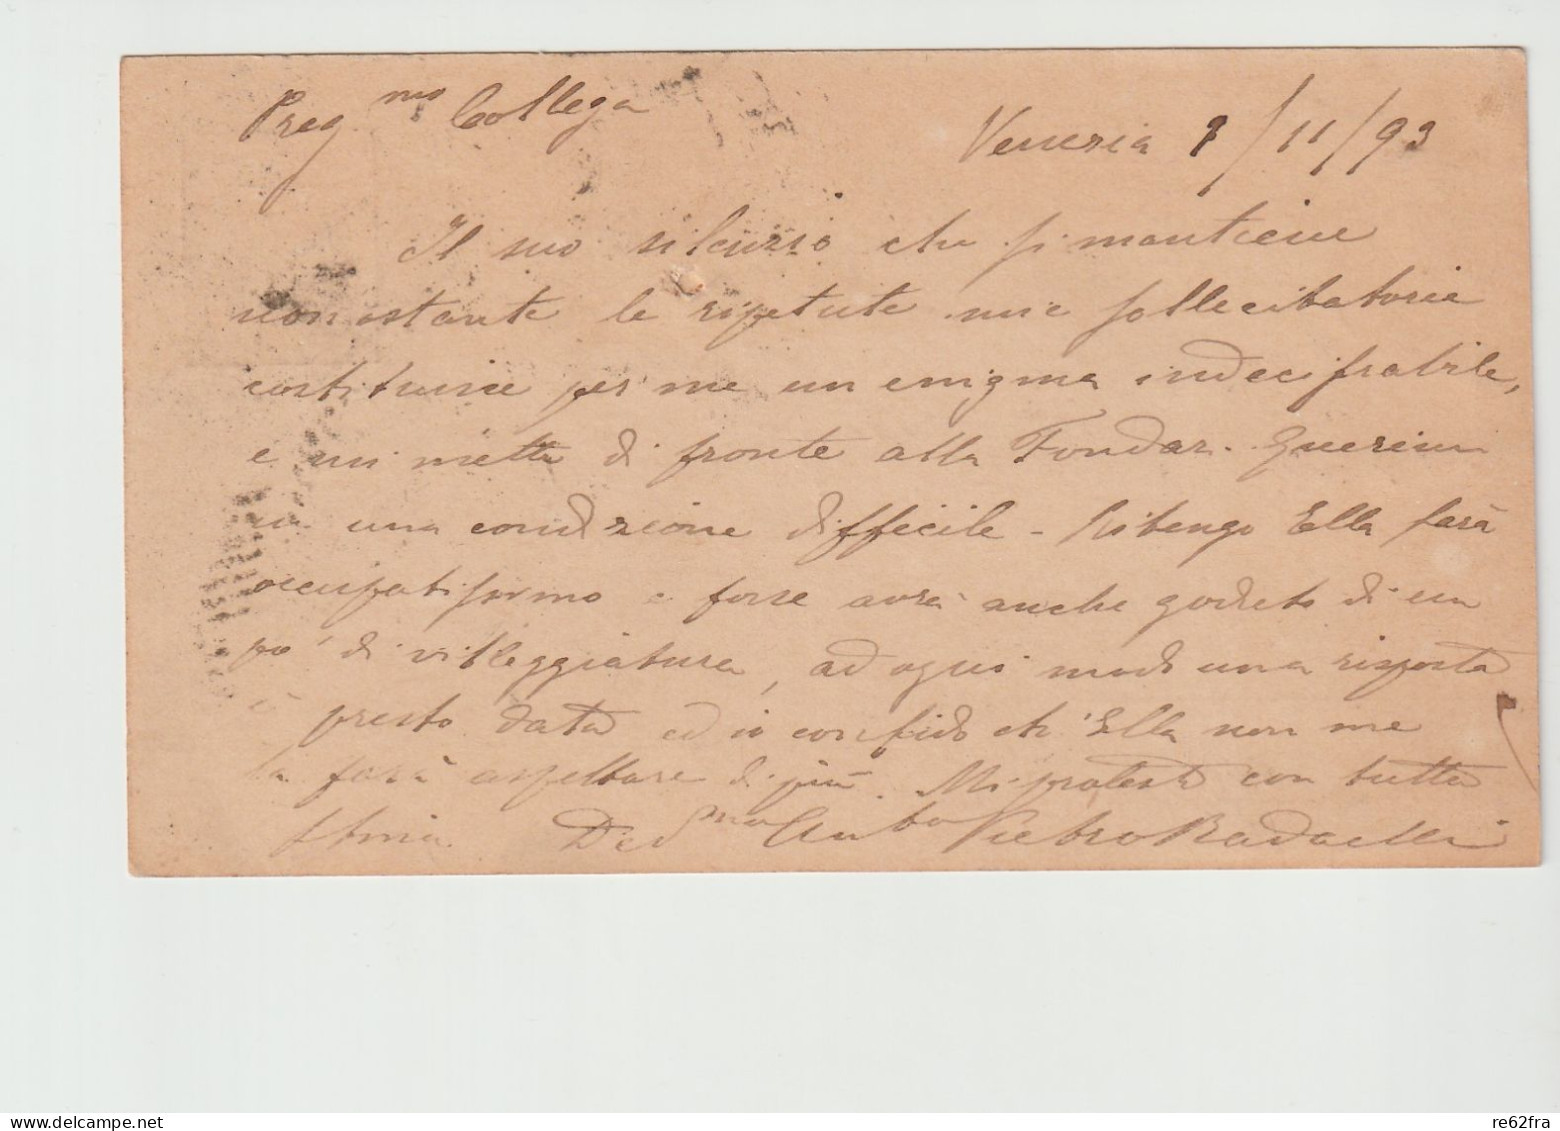 Preg.mo Collega
Venezia 9/11/93
Il suo silenzio che si mantiene
nonostante le ripetute mie sollecitatorie
costituisce per me un enigma indecifrabile,
e mi mette di fronte alla Fondaz. Querini
in una condizione difficile - Ritengo Ella sarà
occupatissimo e forse avrà anche goduto di un
po' di villeggiatura, ad ogni modo una risposta
è presto data ed io confido ch'Ella non me
la farà aspettare di più. Mi protesto con tutta
stima. Dev.mo Pietro Radaelli
www.delcampe.net
re62fra